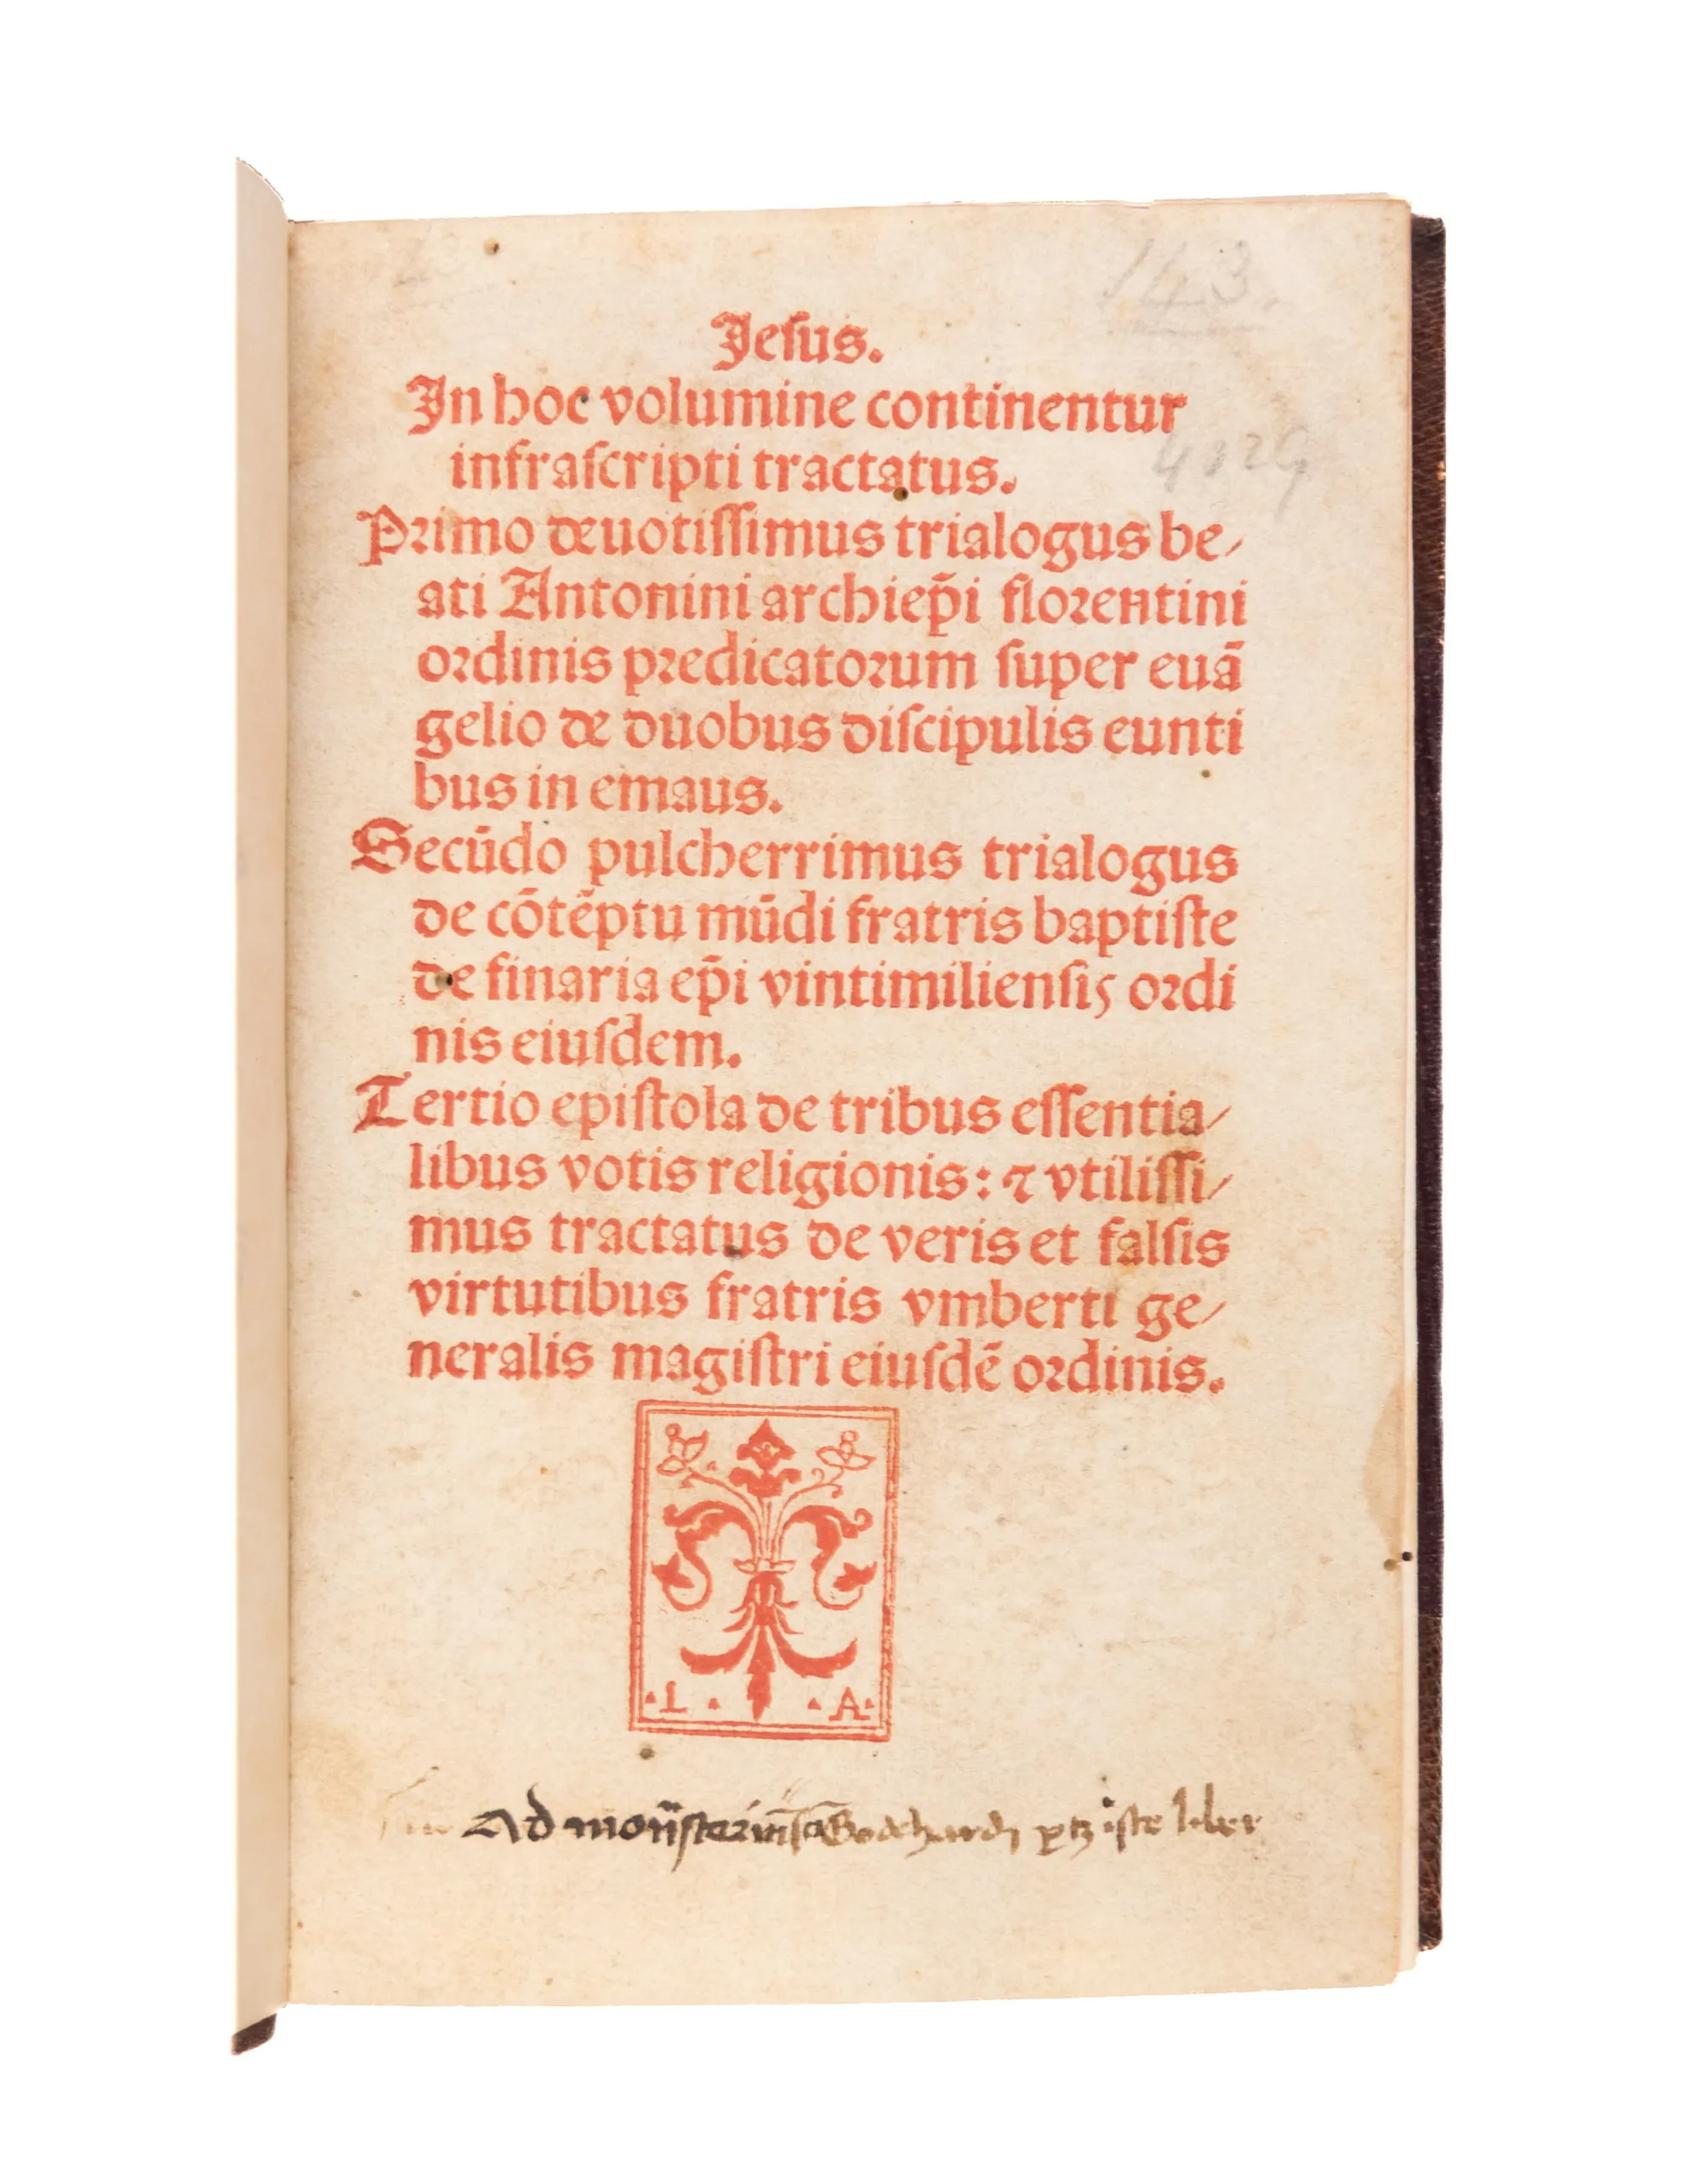 143.
Jesus.
In hoc volumine continentur
4029
infraſcripti tractatus.
Primo deuotiſſimus trialogus be⸗
ati Antonini archiep̄i florentini
ordinis predicatorum ſuper euā
gelio de duobus diſcipulis eunti
bus in emaus.
Secūdo pulcherrimus trialogus
de cōtēptu mūdi fratris baptiſte
de finaria ep̄i vintimilienſis ordi
nis eiuſdem.
Tertio epiſtola de tribus eſſentia⸗
libus votis religionis: ⁊ vtiliſſi⸗
mus tractatus de veris et falſis
virtutibus fratris vmberti ge⸗
neralis magiſtri eiuſdē ordinis.
.L. .A.
Ad ſcī Godehardi ꝑtꝫ iſte liber